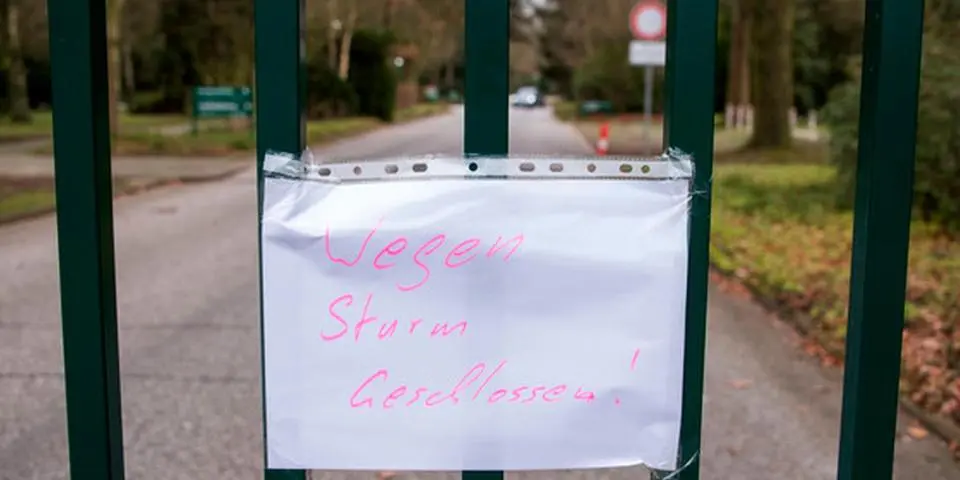 Wegen
Sturm
Geschlossen!